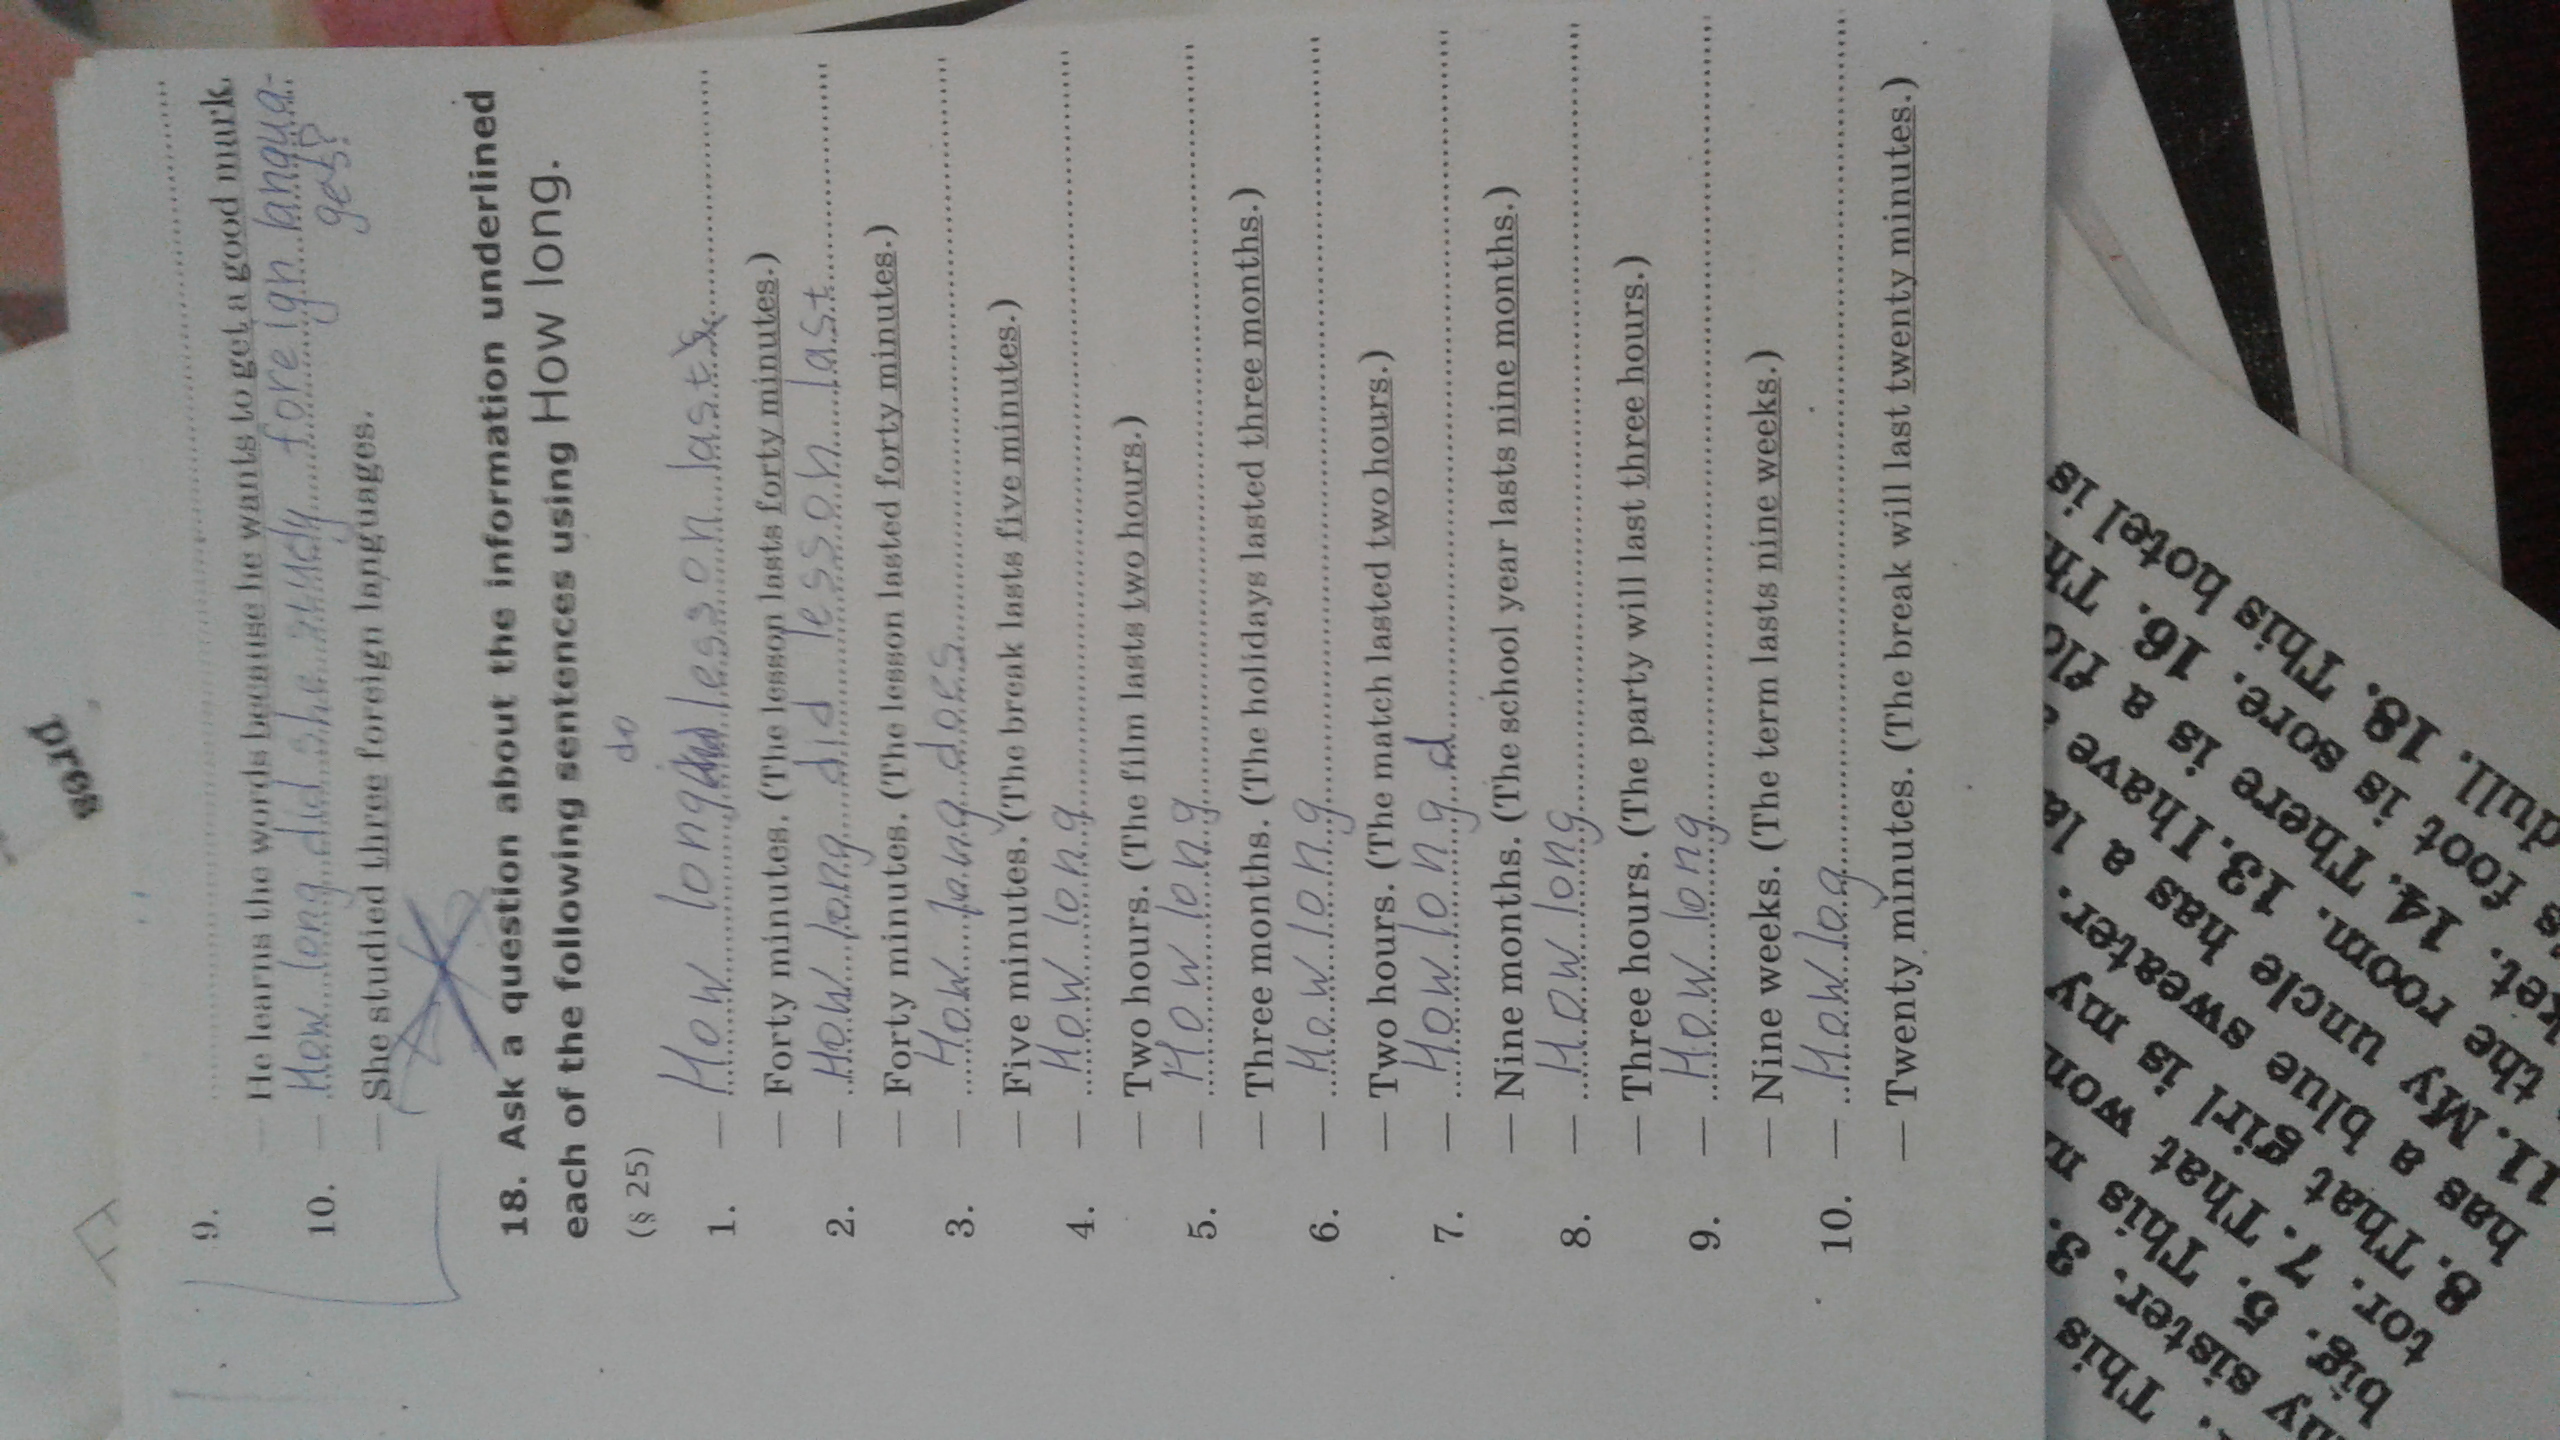 9. ..........
— He learns the words because he wants to get a good mark.
10. — How long did she study foreign langua-
ges?
— She studied three foreign languages.
18. Ask a question about the information underlined
each of the following sentences using How long.
(§ 25)
do
1. — How long lesson last
— Forty minutes. (The lesson lasts forty minutes.)
2. — How long did lesson last
— Forty minutes. (The lesson lasted forty minutes.)
3. — How long does
— Five minutes. (The break lasts five minutes.)
4. — How long
— Two hours. (The film lasts two hours.)
5. — How long
— Three months. (The holidays lasted three months.)
6. — How long
— Two hours. (The match lasted two hours.)
7. — How long d
— Nine months. (The school year lasts nine months.)
8. — How long
— Three hours. (The party will last three hours.)
9. — How long
— Nine weeks. (The term lasts nine weeks.)
10. — How log
— Twenty minutes. (The break will last twenty minutes.)
pres
This
my sister. 3. This
big. 5. This
tor. 7. That
8. That girl is my
has a blue sweater.
11. My uncle has a
the room. 13. I have
ket. 14. There is a
foot is sore. 16.
dull. 18. This hotel is